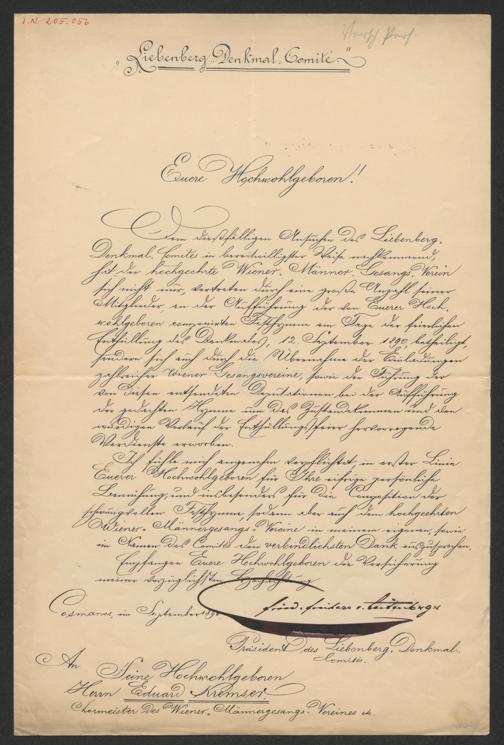 I.N. 205.056
„Liebenberg-Denkmal-Comité“
Euere Hochwohlgeboren!
Dem diesfälligen Ansuchen des Liebenberg-
Denkmal-Comités in bereitwilligster Weise nachkommend,
hat der hochgeehrte Wiener-Männer-Gesangs-Verein
sich nicht nur, vertreten durch eine große Anzahl seiner
Mitglieder, an der Aufführung der von Euerer Hoch-
wohlgeboren componirten Festhymne am Tage der feierlichen
Enthüllung des Denkmales, 12. September 1890 betheiligt,
sondern sich auch durch die Übernahme der Einladungen
zahlreicher Wiener Gesangsvereine, sowie der Führung der
von diesen entsendeten Deputationen bei der Aufführung
der gedachten Hymne um das Zustandekommen und den
würdigen Verlauf der Enthüllungsfeier hervorragende
Verdienste erworben.
Ich fühle mich angenehm verpflichtet in erster Linie
Euerer Hochwohlgeboren für Ihre eifrige persönliche
Bemühung, und insbesonders für die Composition der
schwungvollen Festhymne, sodann aber auch dem hochgeehrten
Wiener-Männergesangs-Vereine in meinem eigenen, sowie
im Namen des Comités den verbindlichsten Dank auszusprechen.
Empfangen Euere Hochwohlgeboren die Versicherung
meiner vorzüglichsten Hochachtung
Cosmanos, im September 1890
Präsident des Liebenberg-Denkmal-
Comités.
An
Seine Hochwohlgeboren
Herrn Eduard Kremser
Chormeister des Wiener-Männergesangs-Vereines etc.